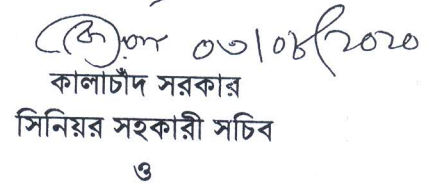 ০৩|০৮|২০২০
কালাচাঁদ সরকার
সিনিয়র সহকারী সচিব
ও